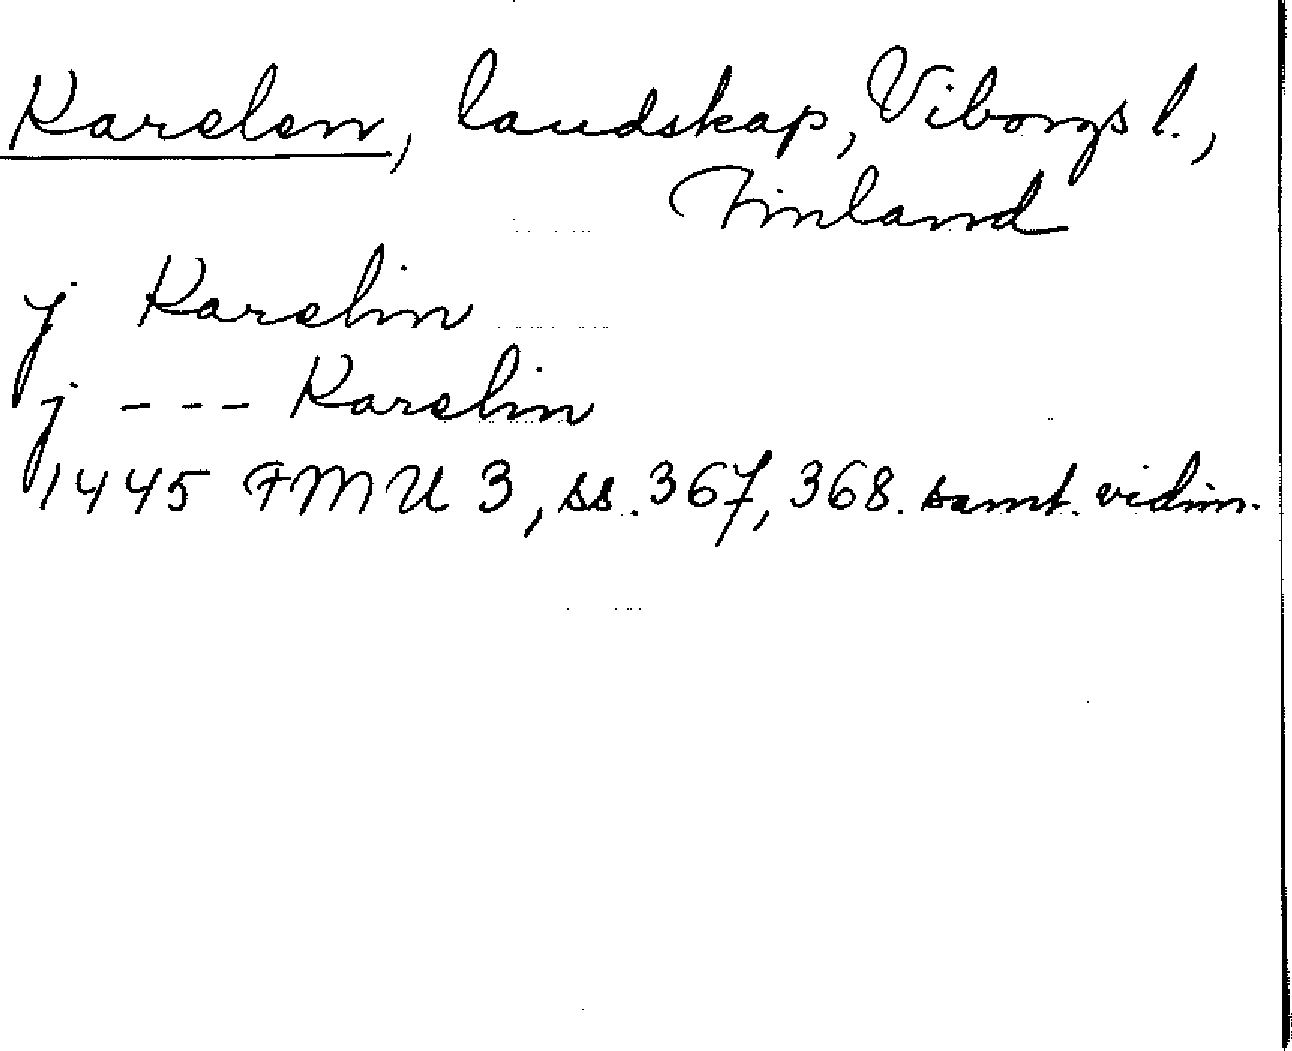 Karelen, landskap, Viborgs l.,
Finland
j Karelin
j --- Karelin
1445 FMU 3, ss. 367, 368. samt. vidim.